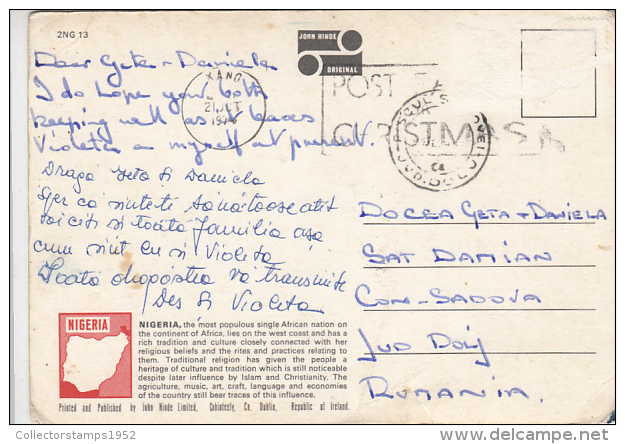 2NG 13
JOHN HINDE
ORIGINAL
Dear Geta + Daniela
I do hope your both
keeping well as it leaves
Violeta + myself at present.
KANO
21 OCT
POST EA
CHRISTMAS
Draga Geta si Daniela
sper ca sinteti sanatoose atit
voi cit si toata familia asa
cum sint eu si Violeta
Toata dragostea va transmite
Des si Violeta
DOCEA GETA + DANIELA
SAT DAMIAN
COM-SADOVA
JUD DOLJ
RUMANIA.
NIGERIA
NIGERIA, the most populous single African nation on
the continent of Africa, lies on the west coast and has a
rich tradition and culture closely connected with her
religious beliefs and the rites and practices relating to
them. Traditional religion has given the people a
heritage of culture and tradition which is still noticeable
despite later influence by Islam and Christianity. The
agriculture, music, art, craft, language and economies
of the country still bear traces of this influence.
Printed and Published by John Hinde Limited, Cabinteely, Co. Dublin, Republic of Ireland.
Collectorstamps1952